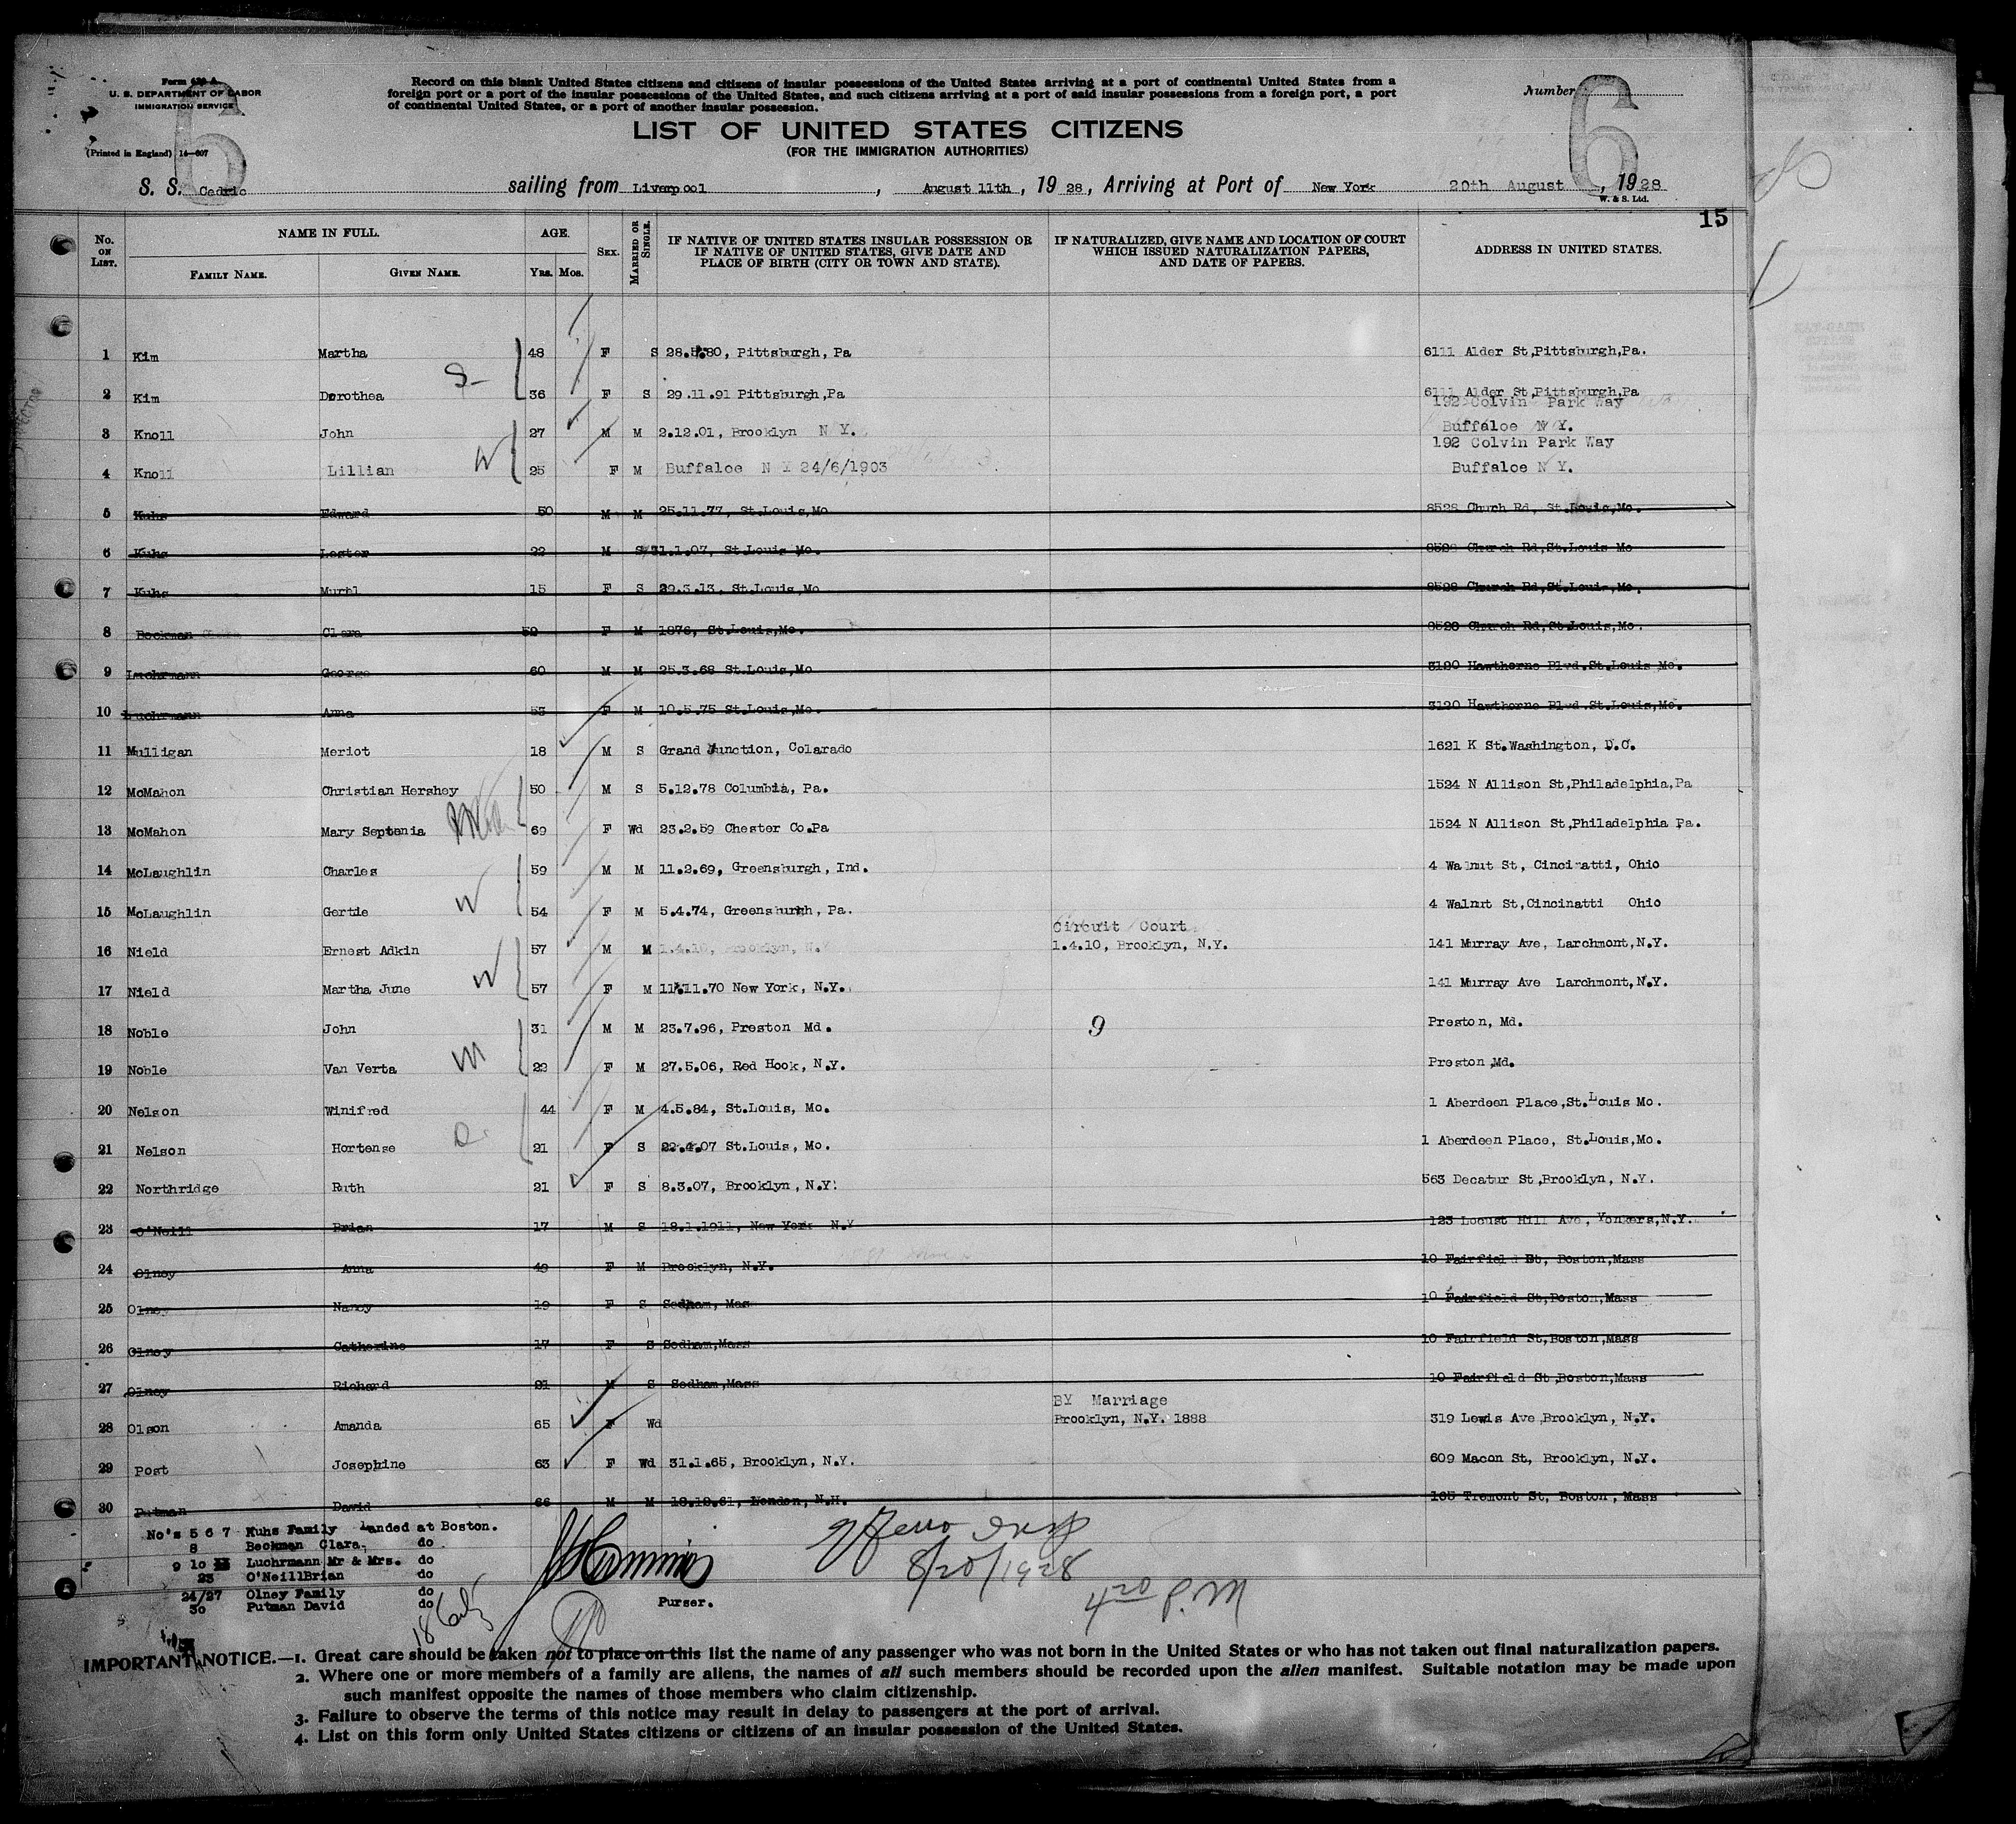 Form 630 A.
U. S. DEPARTMENT OF LABOR
IMMIGRATION SERVICE
(Printed in England) 14—607
6
Record on this blank United States citizens and citizens of insular possessions of the United States arriving at a port of continental United States from a
foreign port or a port of the insular possessions of the United States, and such citizens arriving at a port of said insular possessions from a foreign port, a port
of continental United States, or a port of another insular possession.
Number
6
LIST OF UNITED STATES CITIZENS
(FOR THE IMMIGRATION AUTHORITIES)
S. S. Cedric sailing from Liverpool, August 11th, 1928, Arriving at Port of New York 20th August, 1928
W. & S. Ltd.
15
No. ON LIST. NAME IN FULL. FAMILY NAME. GIVEN NAME. AGE. YRS. MOS. SEX. MARRIED OR SINGLE. IF NATIVE OF UNITED STATES INSULAR POSSESSION OR IF NATIVE OF UNITED STATES, GIVE DATE AND PLACE OF BIRTH (CITY OR TOWN AND STATE). IF NATURALIZED, GIVE NAME AND LOCATION OF COURT WHICH ISSUED NATURALIZATION PAPERS, AND DATE OF PAPERS. ADDRESS IN UNITED STATES.
1 Kim Martha 48 F S 28.5.80, Pittsburgh, Pa 6111 Alder St,Pittsburgh,Pa.
2 Kim Dorothea 36 F S 29.11.91 Pittsburgh,Pa 6111 Alder St,Pittsburgh,Pa
192 Colvin Park Way
3 Knoll John 27 M M 2.12.01, Brooklyn N Y. Buffaloe N Y.
192 Colvin Park Way
4 Knoll Lillian 25 F M Buffaloe N Y 24/6/1903 Buffaloe N Y.
5 Kuhs Edward 50 M M 25.11.77, St.Louis,Mo 8528 Church Rd, St.Louis,Mo.
6 Kuhs Lester 22 M S 1.1.07, St.Louis Mo. 8528 Church Rd,St.Louis Mo
7 Kuhs Murel 15 F S 29.3.13, St.Louis,Mo 8528 Church Rd,St.Louis,Mo.
8 Beckman Clara 52 F M 1876, St.Louis,Mo. 8528 Church Rd,St.Louis,Mo.
9 Luehrmann George 60 M M 25.3.68 St.Louis,Mo 3120 Hawthorne Blvd.St.Louis Mo.
10 Luehrmann Anna 53 F M 10.5.75 St.Louis,Mo. 3120 Hawthorne Blvd.St.Louis,Mo.
11 Mulligan Meriot 18 M S Grand Junction, Colarado 1621 K St.Washington, D.C.
12 McMahon Christian Hershey 50 M S 5.12.78 Columbia, Pa. 1524 N Allison St,Philadelphia,Pa
13 McMahon Mary Septenia 69 F Wd 23.2.59 Chester Co.Pa 1524 N Allison St,Philadelphia Pa.
14 McLaughlin Charles 59 M M 11.2.69, Greensburgh, Ind. 4 Walnut St, Cincinatti, Ohio
15 McLaughlin Gertie 54 F M 5.4.74, Greensburgh, Pa. 4 Walnut St,Cincinatti Ohio
Circuit Court
16 Nield Ernest Adkin 57 M M 1.4.10, Brooklyn, N.Y 1.4.10, Brooklyn, N.Y. 141 Murray Ave, Larchmont,N.Y.
17 Nield Martha June 57 F M 11.11.70 New York, N.Y. 141 Murray Ave Larchmont,N.Y.
18 Noble John 31 M M 23.7.96, Preston Md. 9 Preston, Md.
19 Noble Van Verta 22 F M 27.5.06, Red Hook, N.Y. Preston,Md.
20 Nelson Winifred 44 F M 4.5.84, St.Louis, Mo. 1 Aberdeen Place,St.Louis Mo.
21 Nelson Hortense 21 F S 22.4.07 St.Louis, Mo. 1 Aberdeen Place, St.Louis,Mo.
22 Northridge Ruth 21 F S 8.3.07, Brooklyn, N.Y. 563 Decatur St,Brooklyn, N.Y.
23 O'Neill Brian 17 M S 18.1.1911, New York N.Y 123 Locust Hill Ave, Yonkers,N.Y.
24 Olney Anna 49 F M Brooklyn, N.Y. 10 Fairfield St, Boston,Mass
25 Olney Nancy 19 F S Sedham, Mas 10 Fairfield St,Boston,Mass
26 Olney Catherine 17 F S Sedham,Mass 10 Fairfield St,Boston,Mass
27 Olney Richard 21 M S Sedham,Mass 10 Fairfield St,Boston,Mass
BY Marriage
28 Olson Amanda 65 F Wd Brooklyn, N.Y. 1888 319 Lewis Ave,Brooklyn, N.Y.
29 Post Josephine 63 F Wd 31.1.65, Brooklyn, N.Y. 609 Macon St, Brooklyn, N.Y.
30 Putman David 66 M M 18.12.61, London, N.H. 165 Tremont St, Boston, Mass
No's 5 6 7 Kuhs Family Landed at Boston.
8 Beckman Clara. do
9 10 Luehrmann Mr & Mrs. do
23 O'NeillBrian do
24/27 Olney Family do
30 Putman David do
Purser.
8/20/1928
4 20 P.M
IMPORTANT NOTICE.—1. Great care should be taken not to place on this list the name of any passenger who was not born in the United States or who has not taken out final naturalization papers.
2. Where one or more members of a family are aliens, the names of all such members should be recorded upon the alien manifest. Suitable notation may be made upon
such manifest opposite the names of those members who claim citizenship.
3. Failure to observe the terms of this notice may result in delay to passengers at the port of arrival.
4. List on this form only United States citizens or citizens of an insular possession of the United States.